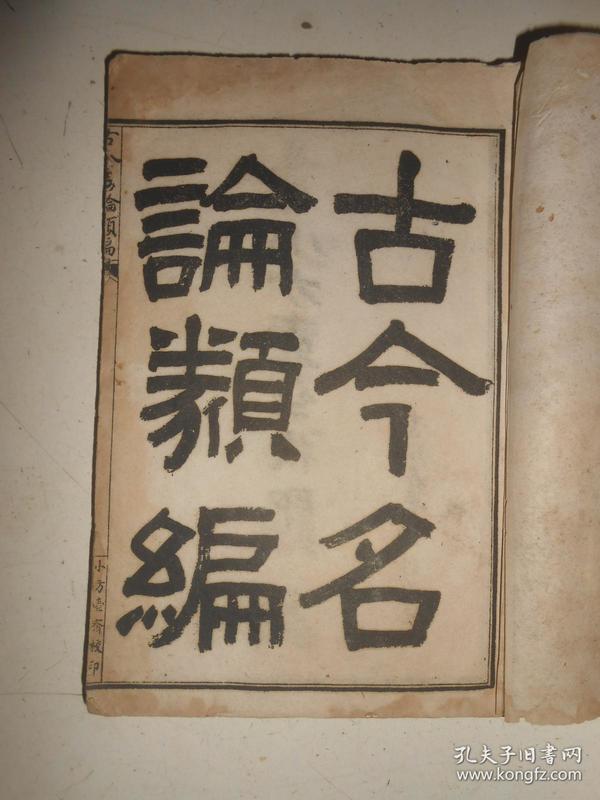 古今名
論類編
古今名論類編
小方壺齋校印
孔夫子旧书网
www.kongfz.com